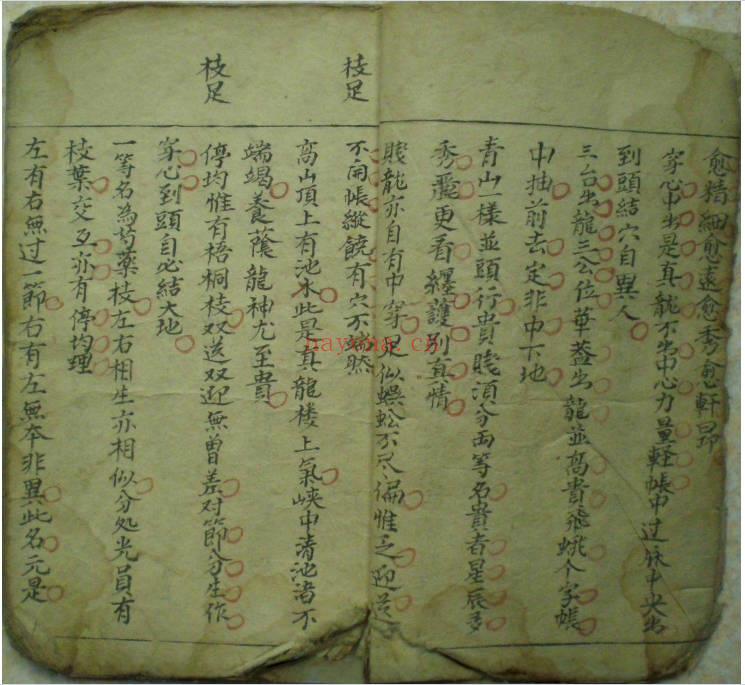 愈精細愈遠愈秀愈軒昂
穿心中出是真龍不出中心力量輕帳中过脉中央出
到頭結穴自異人
三台出龍三公位華蓋出龍並高貴飛蛾个字帳
中抽前去定非中下地
青山一樣並頭行貴賤須分両等名貴者星辰多
秀麗更看纏護別真情
賤龍亦自有中穿足似蜈蚣不尽偏惟乏迎送
枝足
不開帳縱饒有穴不然
高山頂上有池水此是真龍楼上氣峽中清池渚不
端竭養蔭龍神尤至貴
枝足
停均惟有梧桐枝双送双迎無曽差对節分生作
穿心到頭自必結大地
一等名為芍藥枝左右相生亦相似分処光員有
枝葉交互亦有停均理
左有右無过一節右有左無夲非異此名元是
nayona.cn